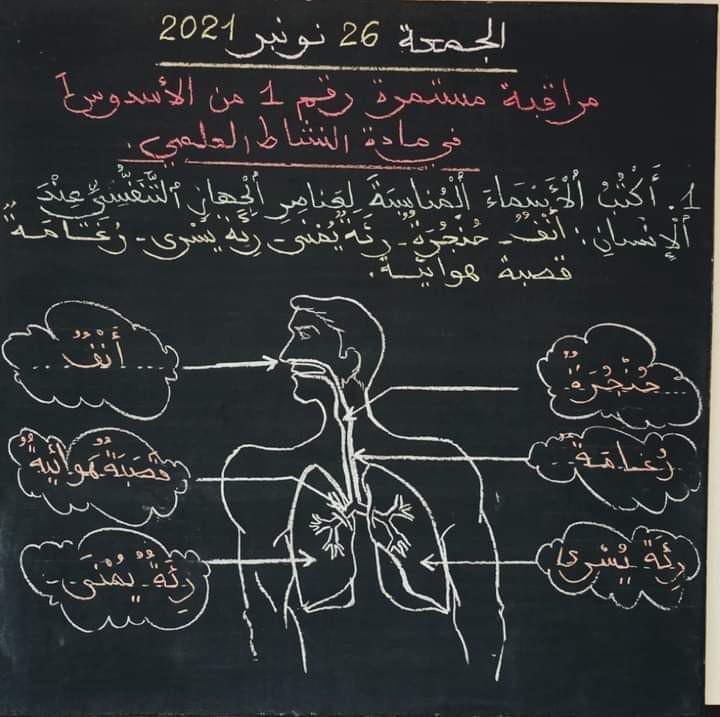 الجمعة 26 نونبر 2021
مراقبة مستمرة رقم 1 من الأسدوس I
في مادة النشاط العلمي.
1. أَكْتُبُ الْأَسْمَاءَ الْمُنَاسِبَةَ لِعَنَاصِرِ الْجِهَازِ التَّنَفُّسِيِّ عِنْدَ
الْإِنْسَانِ: أَنْفٌ - حُنْجُرَةٌ - رِئَةٌ يُمْنَى - رِئَةٌ يُسْرَى - رُغَامَةٌ
قصبة هوائية.
أَنْفٌ
حُنْجُرَةٌ
قَصَبَةٌ هَوَائِيَةٌ
رُغَامَةٌ
رِئَةٌ يُمْنَى
رِئَةٌ يُسْرَى